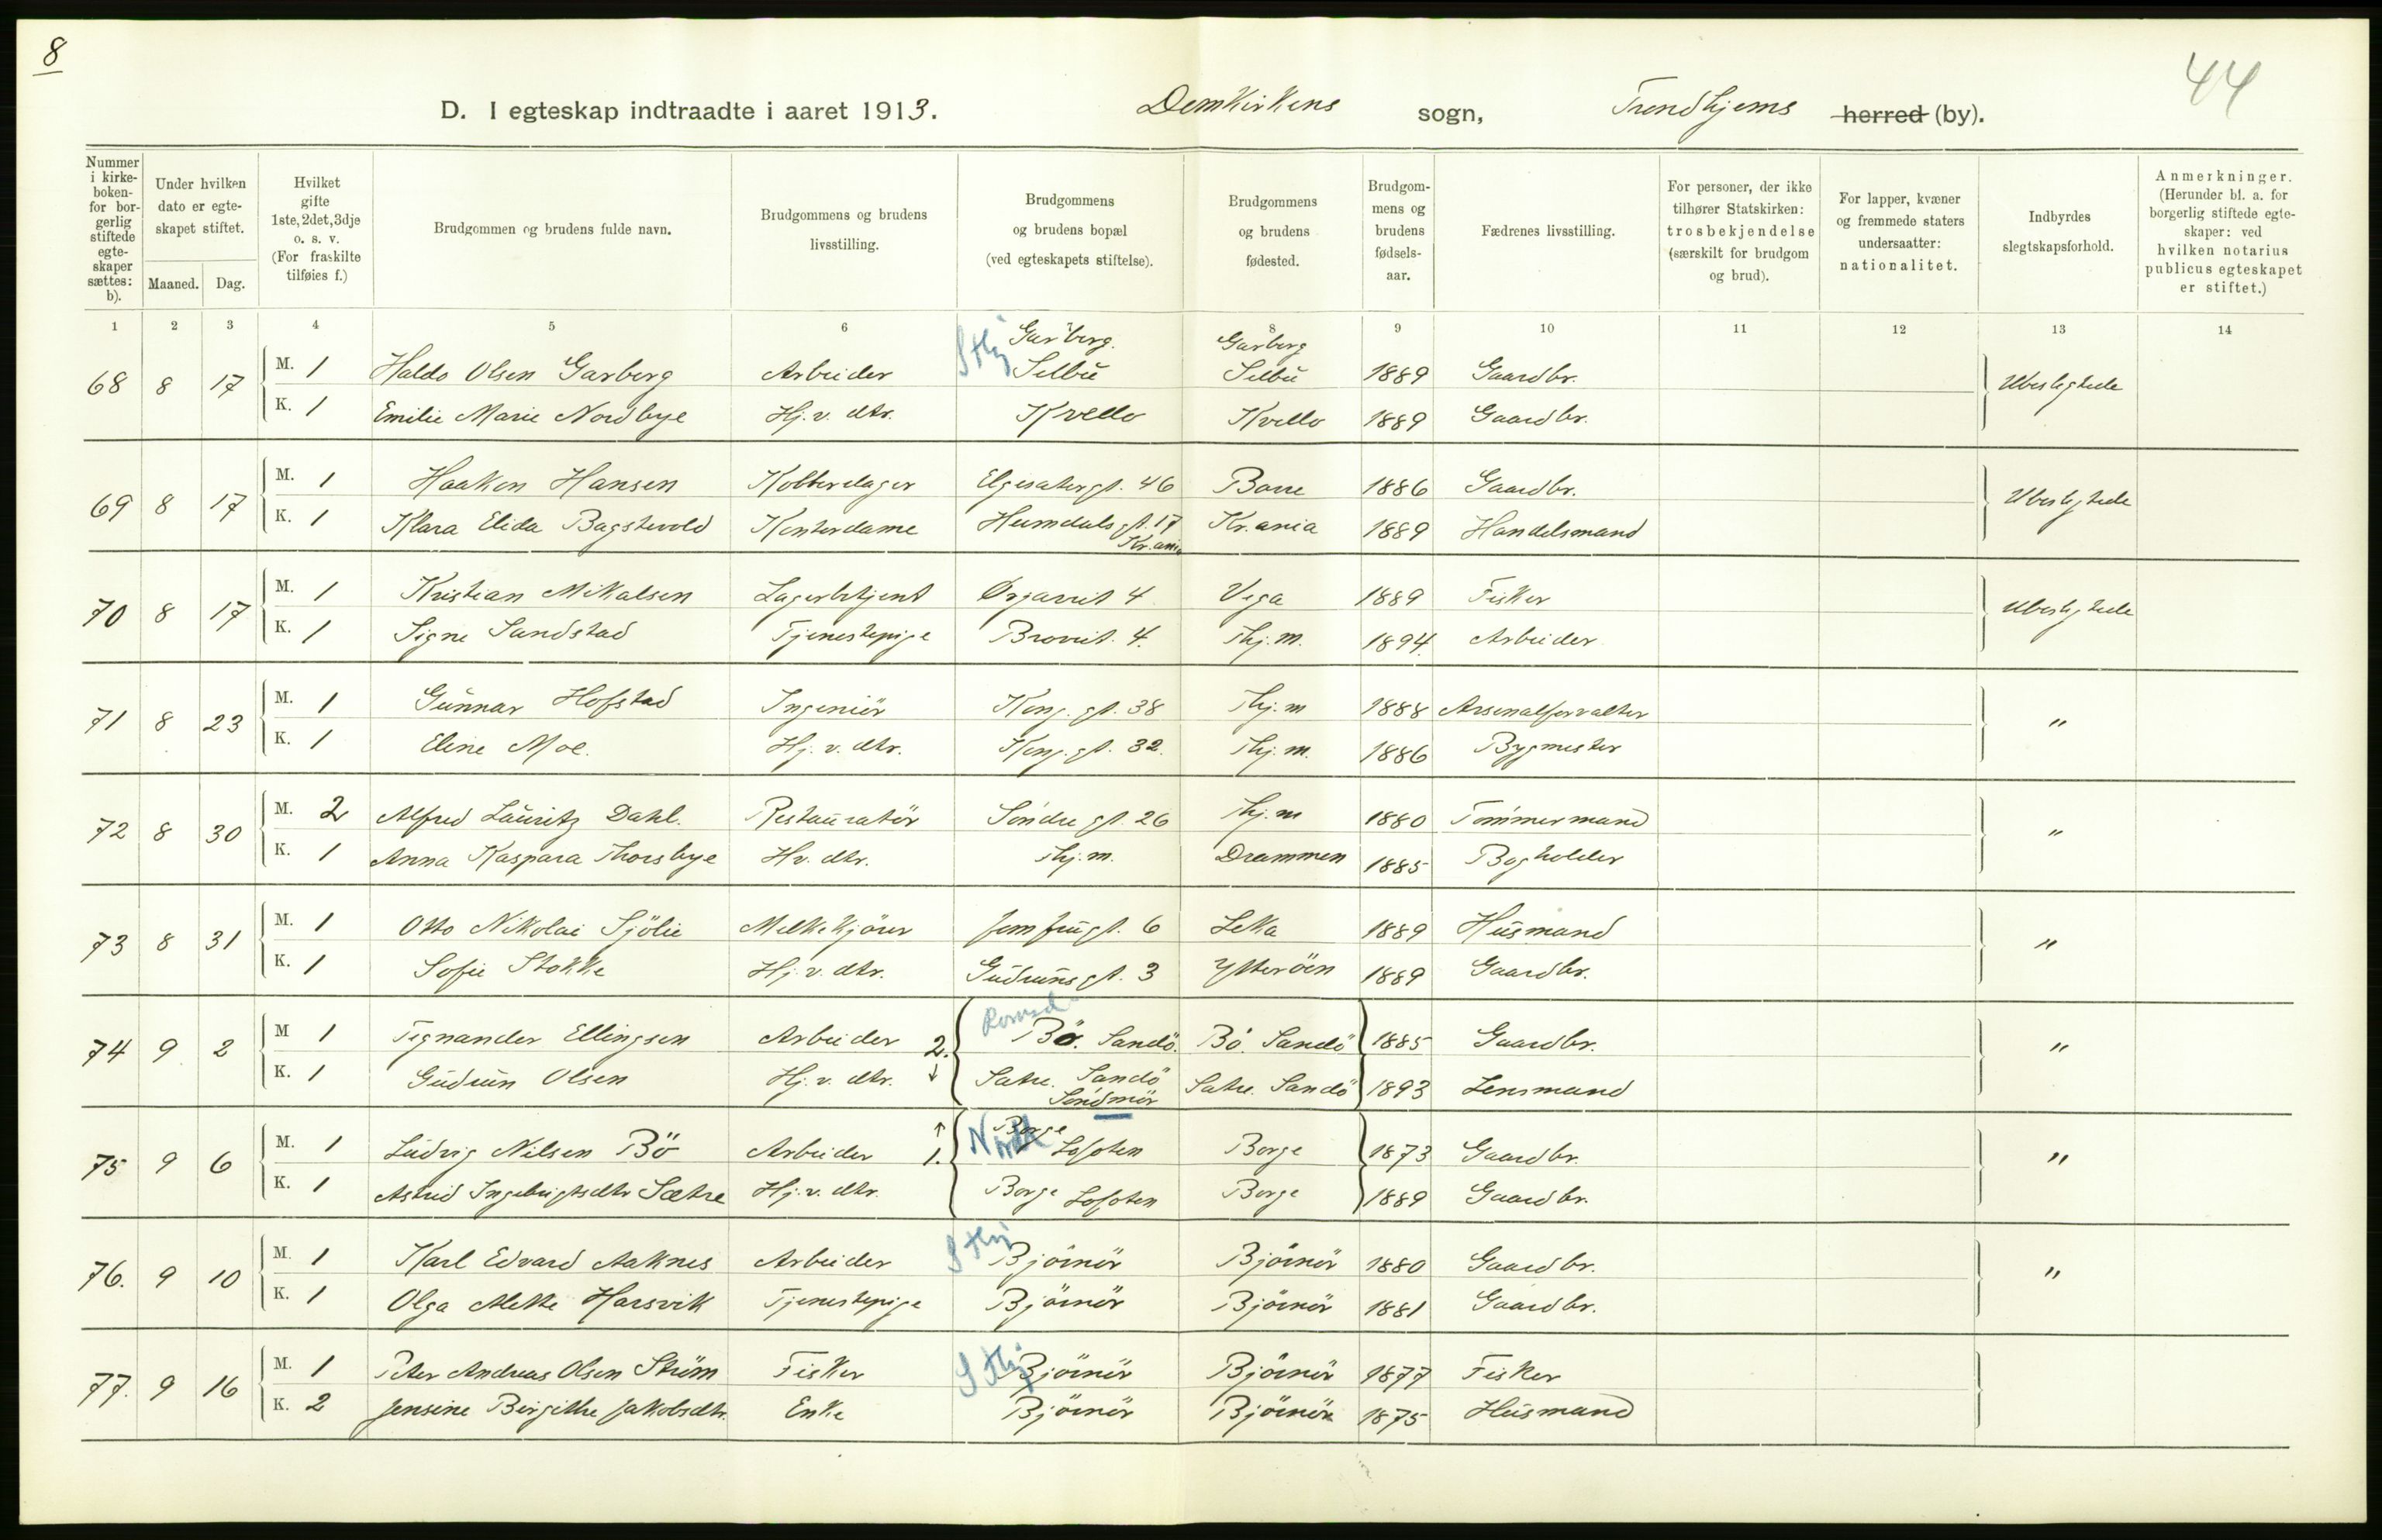 8
44
D. I egteskap indtraadte i aaret 1913. Domkirkens sogn, Trondhjems herred (by).
Nummer i kirkeboken- for borgerlig stiftede egteskaper sættes: b).
Under hvilken dato er egteskapet stiftet.
Maaned. Dag.
Hvilket gifte 1ste, 2det, 3dje o. s. v. (For fraskilte tilføies f.)
Brudgommen og brudens fulde navn.
Brudgommens og brudens livsstilling.
Brudgommens og brudens bopæl (ved egteskapets stiftelse).
Brudgommens og brudens fødested.
Brudgommens og brudens fødselsaar.
Fædrenes livsstilling.
For personer, der ikke tilhører Statskirken: trosbekjendelse (særskilt for brudgom og brud).
For lapper, kvæner og fremmede staters undersaatter: nationalitet.
Indbyrdes slegtskapsforhold.
Anmerkninger. (Herunder bl. a. for borgerlig stiftede egteskaper: ved hvilken notarius publicus egteskapet er stiftet.)
1 2 3 4 5 6 7 8 9 10 11 12 13 14
S Thj Garberg. Garberg
68 8 17 M. 1 Haldo Olsen Garberg Arbeider Selbu Selbu 1889 Gaardbr. Ubeslegtede
K. 1 Emilie Marie Nordbye Hj. v. dtr. Kvello Kvello 1889 Gaardbr.
69 8 17 M. 1 Haakon Hansen Elgesatergt. 46 Borre 1886 Gaardbr. Ubeslegtede
K. 1 Klara Elida Bagstevold Kontordame Heimdalsgt. 17 Kr.ania Kr.ania 1889 Handelsmand
70 8 17 M. 1 Kristian Mikalsen Lagerbetjent Ørjaveit 4 Vega 1889 Fisker Ubeslegtede
K. 1 Signe Sandstad Tjenestepige Broveit. 4. Thj.m. 1894. Arbeider
71 8 23 M. 1 Gunnar Hofstad Ingeniör Kong. gt. 38 Thj.m 1888 Arsenalforvalter "
K. 1 Eline Moe. Hj. v. dtr. Kong. gt. 32. Thj.m. 1886 Bygmester
72 8 30 M. 2 Alfred Lauritz Dahl. Restauratör Söndre gt. 26 Thj.m 1880 Tömmermand "
K. 1 Anna Kaspara Thorsbye Hv. dtr. Thj.m. Drammen 1885 Bogholder
73 8 31 M. 1 Otto Nikolai Sjölie Melkekjörer Jomfrugt. 6 Leka 1889 Husmand "
K. 1 Sofie Stokke Hj. v. dtr. Gudruns gt. 3 Ytteröen 1889 Gaardbr.
Romsd
74 9 2 M 1 Tignander Ellingsen Arbeider 2. Bö. Sandö. Bö. Sandö 1885 Gaardbr. "
K. 1 Gudrun Olsen Hj. v. dtr. ↓ Satre. Sandö Söndmör Satre. Sandö 1893 Lensmand
75 9 6 M. 1 Ludvig Nilsen Bö Arbeider ↑ 1. Nordl Borge Lofoten Borge 1873 Gaardbr. "
K. 1 Astrid Ingebrigtsdtr Sætre Hj. v. dtr. Borge Lofoten Borge 1889 Gaardbr.
S Thj
76. 9 10 M. 1 Karl Edvard Aaknes Arbeider Björnör Björnör 1880 Gaardbr. "
K. 1 Olga Mette Harsvik Tjenestepige Björnör Björnör 1881 Gaardbr.
S Thj
77. 9 16 M. 1 Peter Andreas Olsen Ström Fisker Björnör Björnör 1877 Fisker
K. 2 Jensine Birgitte Jakobsdtr. Enke Björnör Björnör 1875 Husmand